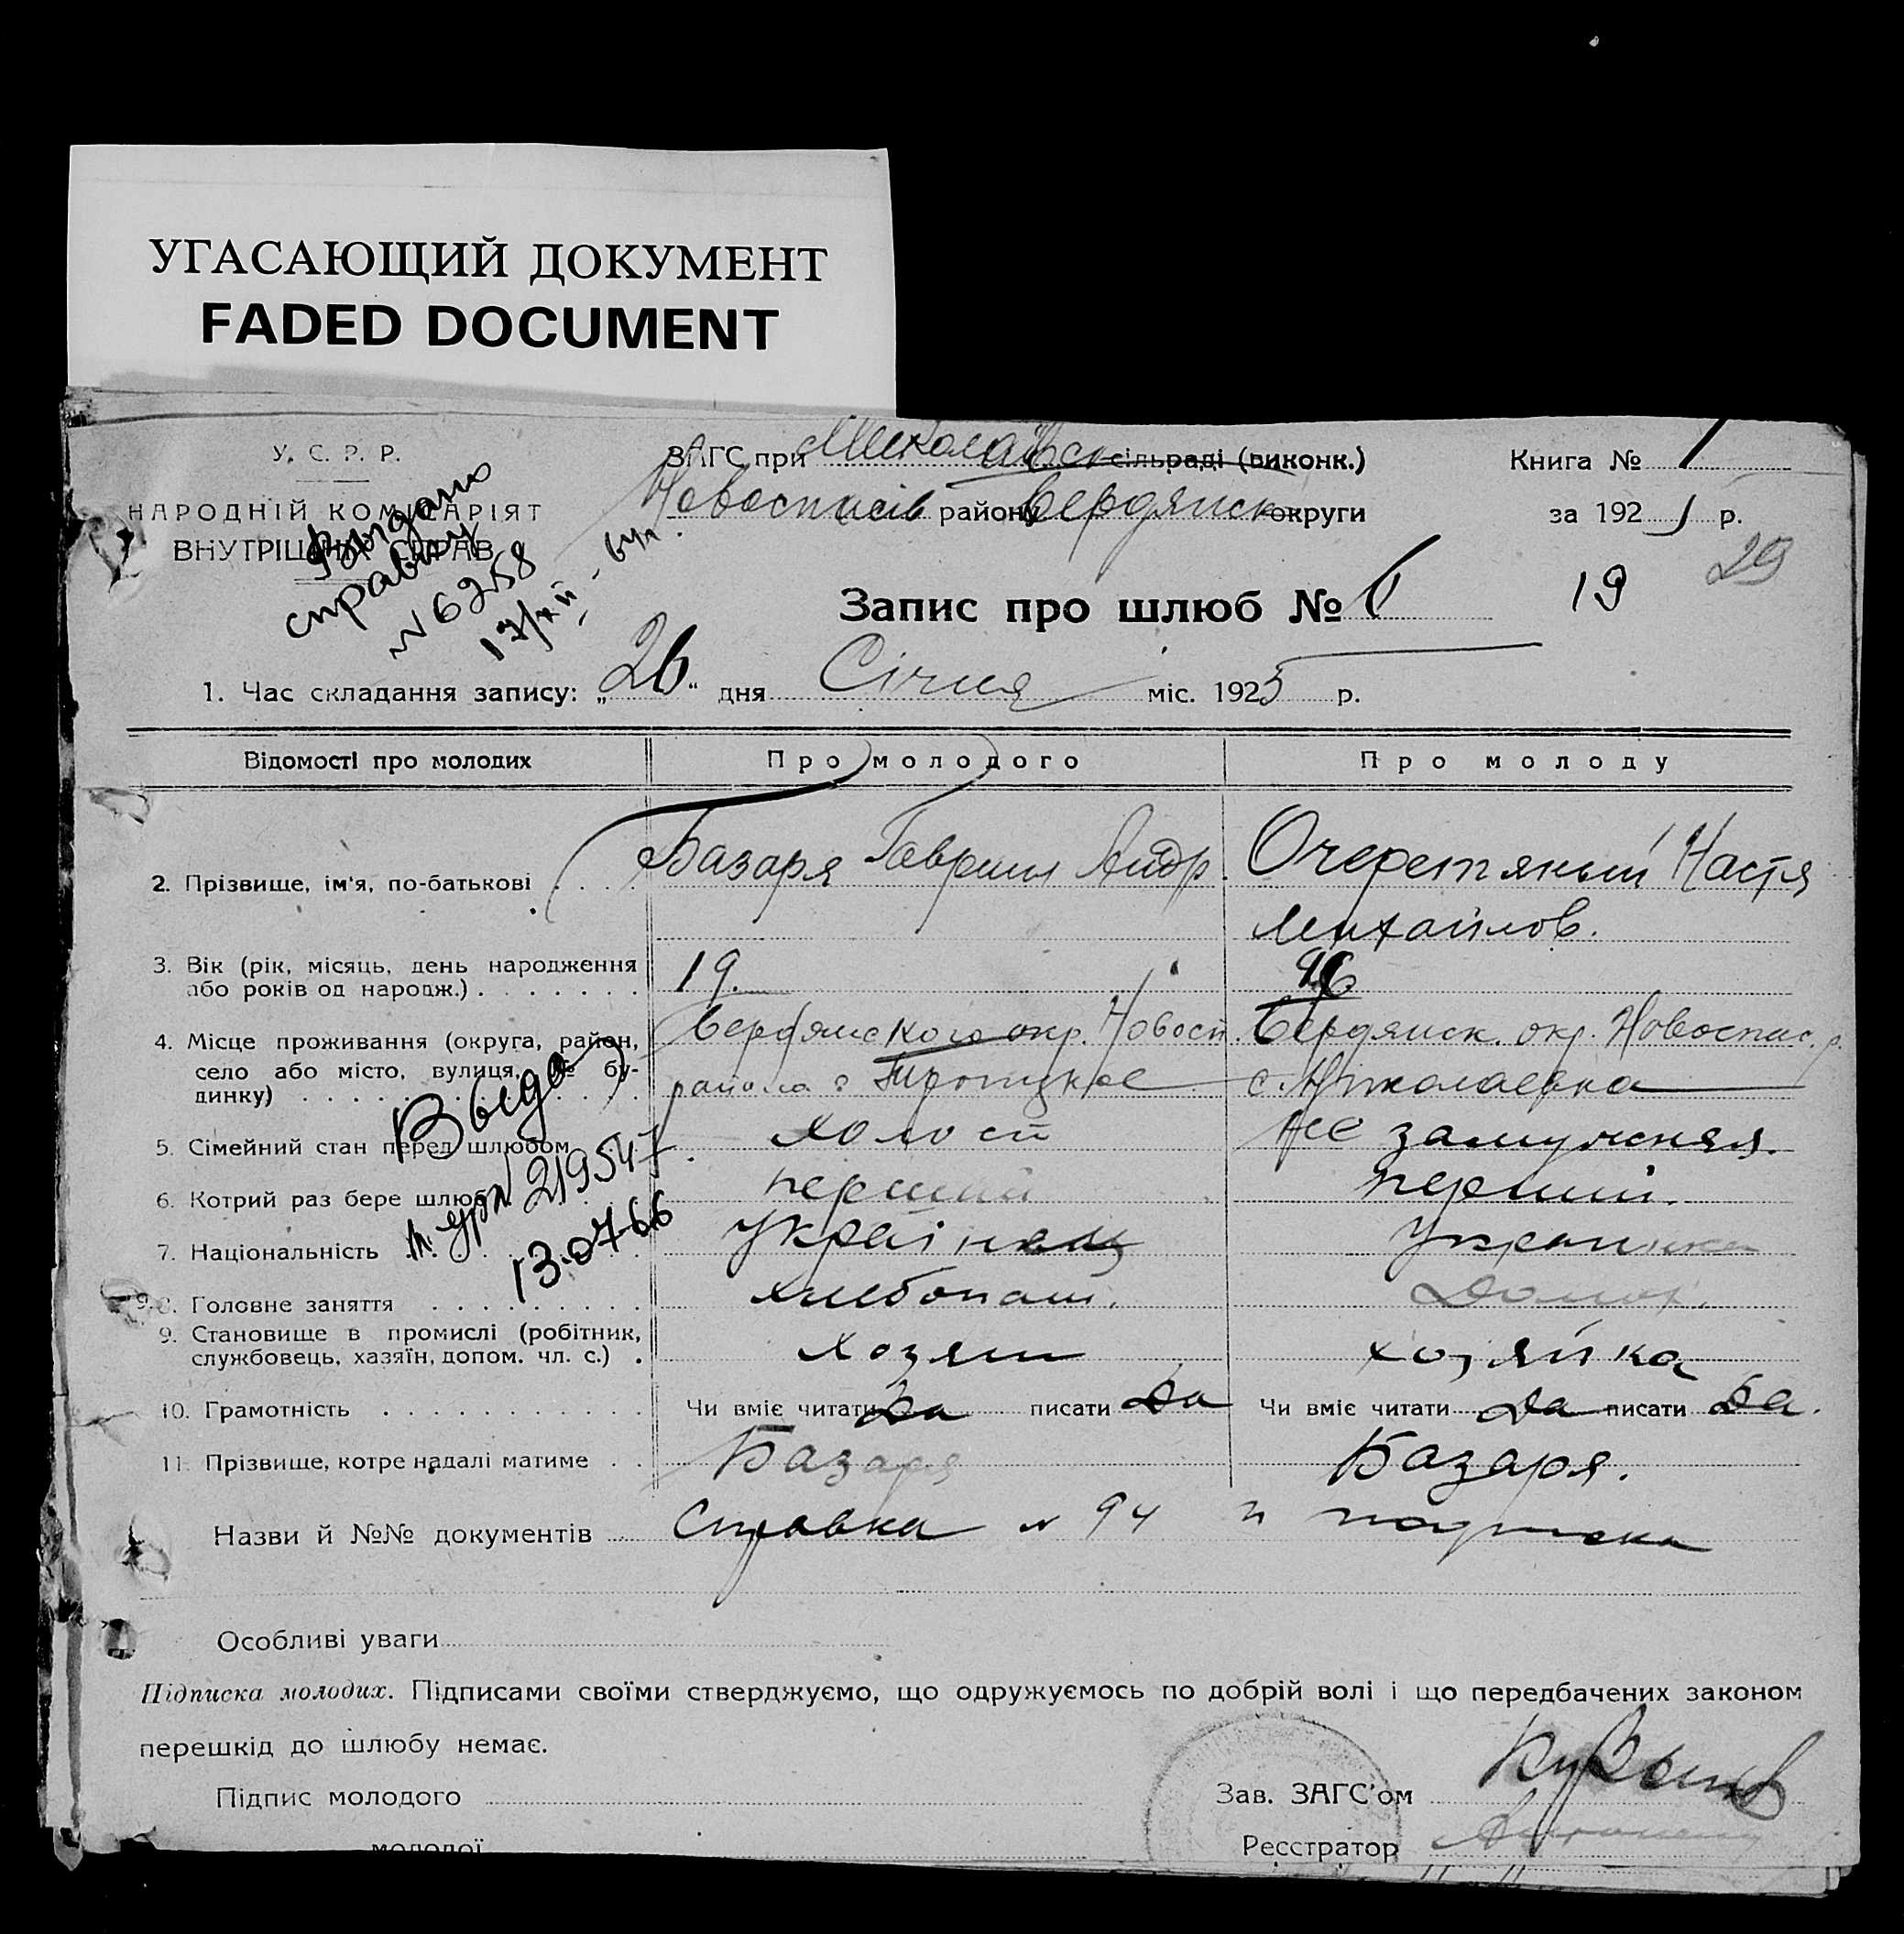 УГАСАЮЩИЙ ДОКУМЕНТ
FADED DOCUMENT
У. С. Р. Р.
НАРОДНІЙ КОМІСАРІЯТ
ВНУТРІШНІХ СПРАВ
Видано
справку
№ 6258
ЗАГС при Миколаївськ сільраді (виконк.)
Новоспасів району Бердянск округи
Книга № 1
за 192 р.
29
19
Запис про шлюб № 6
1. Час складання запису: „26“ дня Січня міс. 1925 р.
Відомості про молодих Про молодого Про молоду
2. Прізвище, ім'я, по-батькові Базаря Гавриил Андр. Очеретяный Настя
Михайлов.
3. Вік (рік, місяць, день народження
або років од народж.) 19.
4. Місце проживання (округа, район, Бердянского окр. Новосп. Бердянск. окр. Новоспас. р.
село або місто, вулиця, № бу-
динку) района с Троицкое с. Николаевка
Выдано
5. Сімейний стан перед шлюбом холост не замужняя.
6. Котрий раз бере шлюб перший перший.
№ 219547
7. Національність українец Украинка
13.07.66
8. Головне заняття хлебопаш. Домох.
9. Становище в промислі (робітник,
службовець, хазяїн, допом. чл. с.) хозяин хозяйка
10. Грамотність Чи вміє читати Да писати Да Чи вміє читати Да писати Да.
11. Прізвище, котре надалі матиме Базаря Базаря.
Назви й №№ документів Справка № 94 и подписка
Особливі уваги
Підписка молодих. Підписами своїми стверджуємо, що одружуємось по добрій волі і що передбачених законом
перешкід до шлюбу немає.
Підпис молодого
Зав. ЗАГС'ом
молодої
Реєстратор